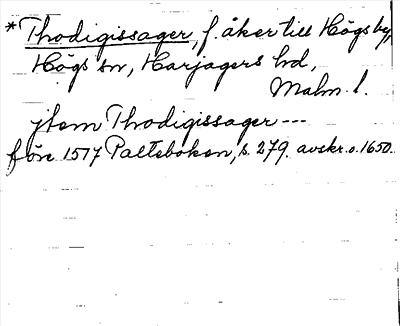 *Thodigissager, f. åker till Högsby,
Högs sn, Harjagers hd,
Malm. l.
jtem Thodigissager ---
före 1517 Palteboken, s. 279. avskr. o. 1650.